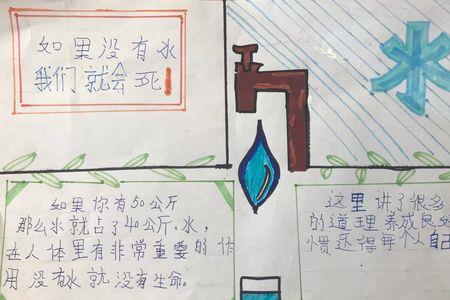 如果没有水
我们就会死!
水
如果你有50公斤
那么水就占了40公斤.水,
在人体里有非常重要的作
用 没有水就没有生命。
这里讲了很多
的道理养成良好
惯还得每个人自己